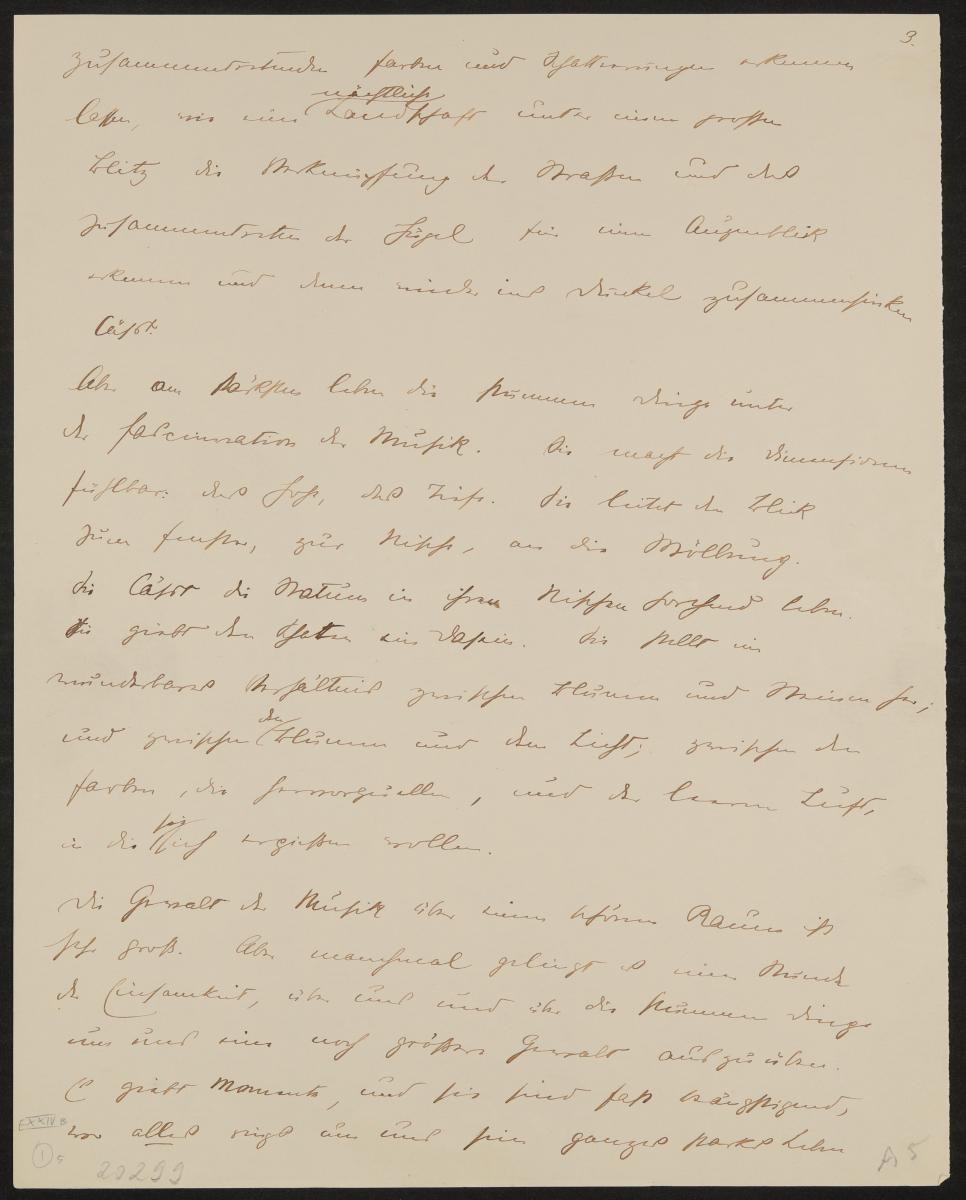 3.
zusammendrohenden Farben und Schattierungen erkennen
nächtliche
lassen, wie eine Landschaft unter einem großen
Blitz die Verknüpfung der Straßen und das
zusammentreten der Hügel für einen Augenblick
erkennen und dann wieder ins Dunkel zusammensinken
läßt.
Aber am stärksten leben die stummen Dinge unter
der fascination der Musik. Sie macht die Dimensionen
fühlbar: das Hohe, das Tiefe. Sie leitet den Blick
zum Fenster, zur Nische, an die Wölbung.
Sie läßt die Statuen in ihren Nischen horchend leben.
Sie giebt dem Schatten ein Dasein. Sie stellt ein
wunderbares Verhältnis zwischen Blumen und Steinen her;
den
und zwischen Blumen und dem Licht; zwischen den
Farben, die hervorquellen, und der leeren Luft,
sie
in die sich ergießen wollen.
Die Gewalt der Musik über einen schönen Raum ist
sehr groß. Aber manchmal gelingt es einer Stunde
der Einsamkeit, über uns und über die stummen Dinge
um uns eine noch größere Gewalt auszuüben.
Es giebt Momente, und sie sind fast beängstigend,
wo alles rings um uns sein ganzes starkes Leben
EXXIV B
1 5
20299
A 5